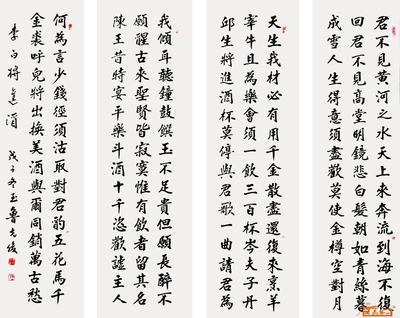 君不見黃河之水天上來奔流到海不復
回君不見高堂明鏡悲白髮朝如青絲暮
成雪人生得意須盡歡莫使金樽空對月
天生我材必有用千金散盡還復來烹羊
宰牛且為樂會須一飲三百杯岑夫子丹
邱生將進酒杯莫停與君歌一曲請君為
我傾耳聽鐘鼓饌玉不足貴但願長醉不
願醒古來聖賢皆寂寞惟有飲者留其名
陳王昔時宴平樂斗酒十千恣歡謔主人
何為言少錢徑須沽取對君酌五花馬千
金裘呼兒將出換美酒與爾同銷萬古愁
李白將進酒 戊子冬玉魯